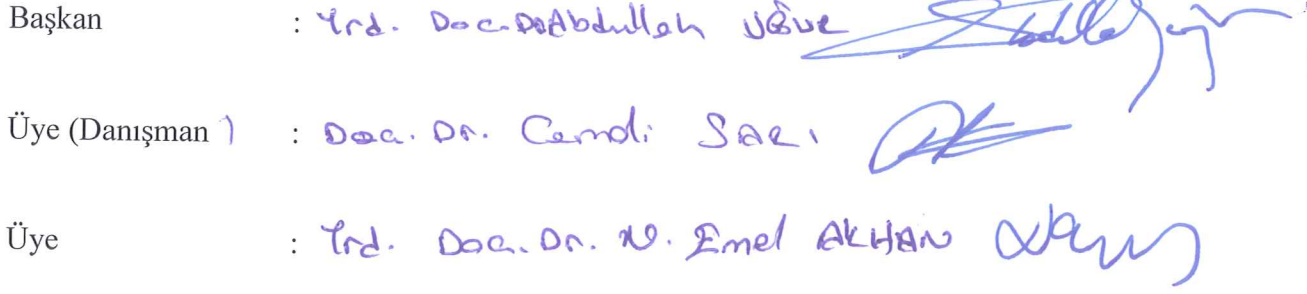 Başkan : Yrd. Doc. Dr Abdullah UĞUR
Üye (Danışman ) : Doc. Dr. Cemali SARI
Üye : Yrd. Doc. Dr. N. Emel AKHAN